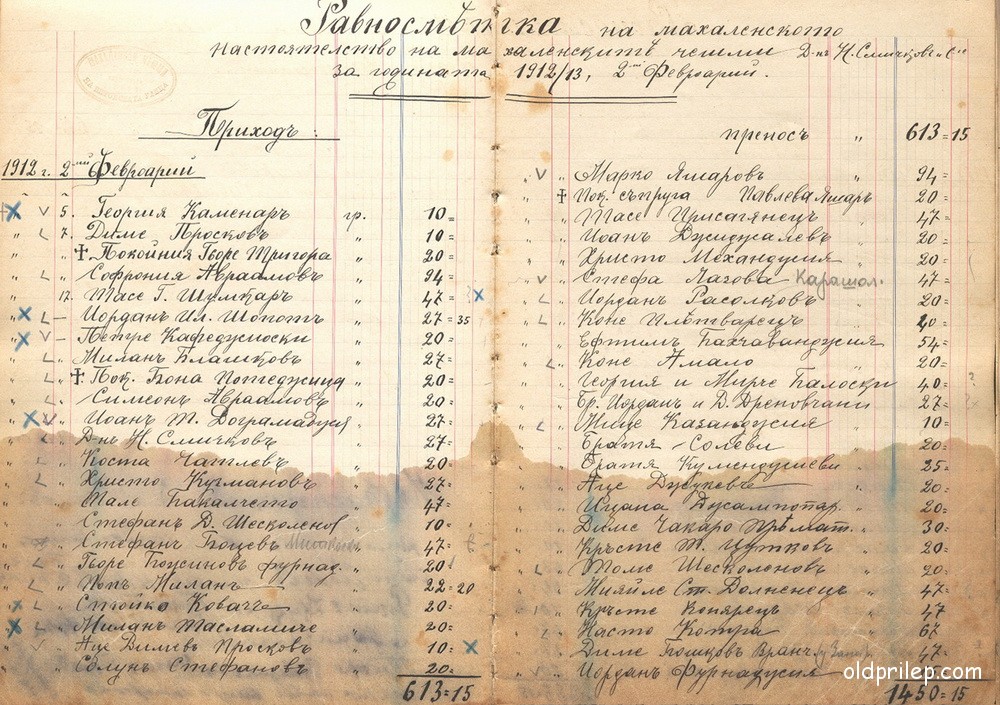 Равносмѣтка на махаленското
настоятелство на махаленскитѣ чешми Д-нъ Н. Смичковъ и С-ие
за годината 1912/13, 2ий Февруарий.
Приходъ:
1912 г. 2ий Февруарий
5. Георгия Каменаръ гр. 10=
" 7. Диме Просковъ " 10=
" " ✝ Покойния Ѓоре Тригора " 20=
" " Софрония Авраамовъ " 94=
" 17. Тасе Г. Шумкаръ " 47=
Иорданъ Ил. Шопотъ " 27=35
Петре Кафеджиоски " 20=
" " Миланъ Блашковъ " 27=
" " ✝ Пок. Бона Потеджица " 20=
" " Симеонъ Авраамовъ " 20=
" Иоанъ Т. Дограмаджия " 27=
" " Д-нъ Н. Смичковъ " 27=
" " Коста Чаплевъ " 20=
" " Христо Кузмановъ " 27=
" " Тале Бакалчето " 47=
" " Стефанъ Д. Шесколенов " 10=
" " Стефанъ Боцевъ " 47=
" " Ѓоре Боусиновъ фурнад. " 20=
" " Попъ Миланъ " 22=20
" Стойко Ковачъ " 20=
" Миланъ Тасламиче " 20=
" " Аце Димевъ Просковъ " 10=
" " Солунъ Стефановъ " 20=
613=15
преносъ " 613=15
" " Марко Яшаровъ " 94=
✝ Пок. съпруга Павлева Яшаръ 20=
" " Тасе Присаѓянецъ " 47=
" " Иоанъ Джиджалевъ " 20=
" " Христо Механджия " 20=
" " Стефа Лазова Карашол. 47=
" " Иорданъ Расолковъ " 20=
" " Коне Плѣтварецъ " 20=
" " Ефтимъ Бахчаванджия 54=
" " Коне Амало " 20=
" " Георгия и Мирче Балоски 40=
" " Бр. Иорданъ и Д. Дреновѓани 27=
" " Мице Казанджия " 10=
" " Братя Солеви " 20=
" " Братя Куменджиеви 25=
" " Аце Джукевъ 20=
" " Диме Чакаро 30=
" " Кръсте Т. 20=
" " Томе Шесколеновъ " 20=
" " Мияйле Ст. Долненецъ " 47=
" " Кръсте Конярецъ " 47=
" " Насто Котра " 67
" " Диме Бошковъ 47=
" " Иорданъ Фурнаджия
1450=15
oldprilep.com